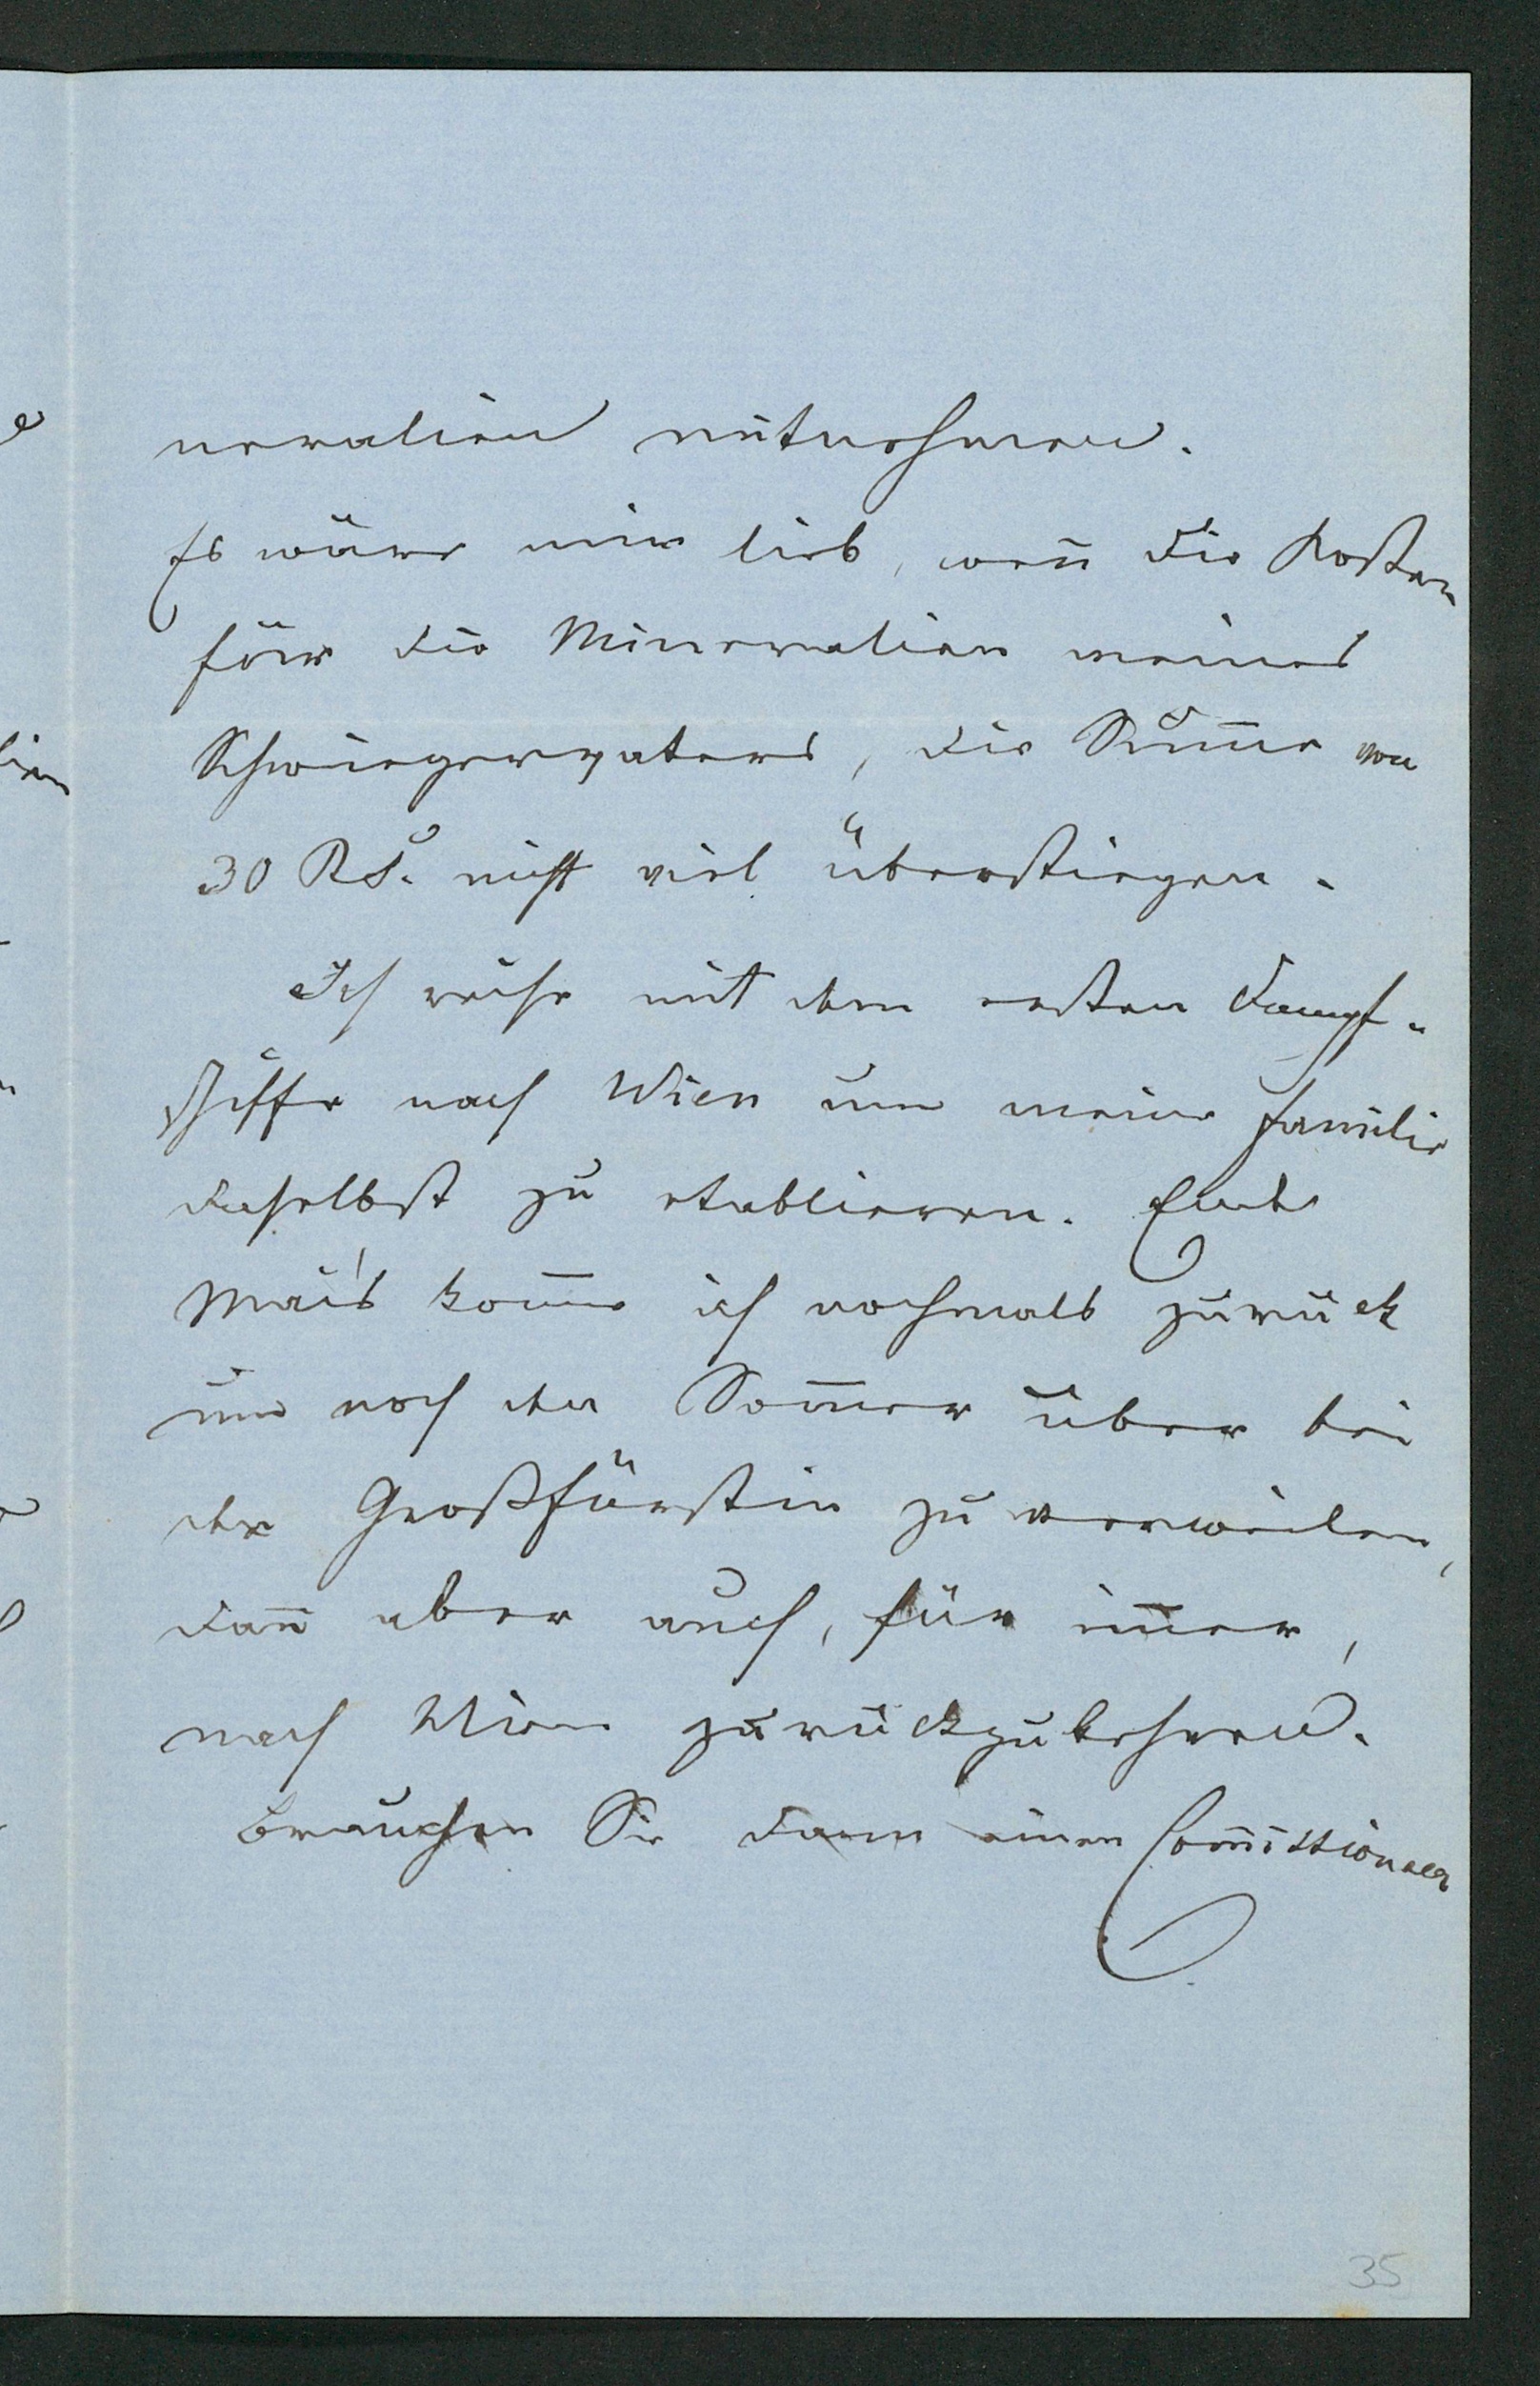 neralien mitnehmen.
Es wäre mir lieb, wen̄ die Kosten
für die Mineralien meines
Schwiegervaters, die Sum̄e von
30 RS. nicht viel überstiegen.
Ich reise mit dem ersten Dampf-
schiffe nach Wien um meine Familie
daselbst zu etablieren. Ende
Mai's kom̄e ich nochmals zurück
um noch den Som̄er über bei
der Großfürstin zu verweilen,
dan̄ aber auch, für im̄er,
nach Wien zurückzukehren.
Brauchen Sie dann einen Com̄issionaer
35